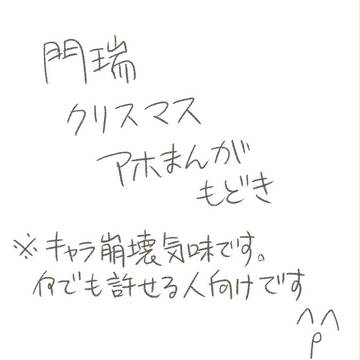 門瑞
クリスマス
アホまんが
もどき
※キャラ崩壊気味です。
何でも許せる人向けです
^^
p